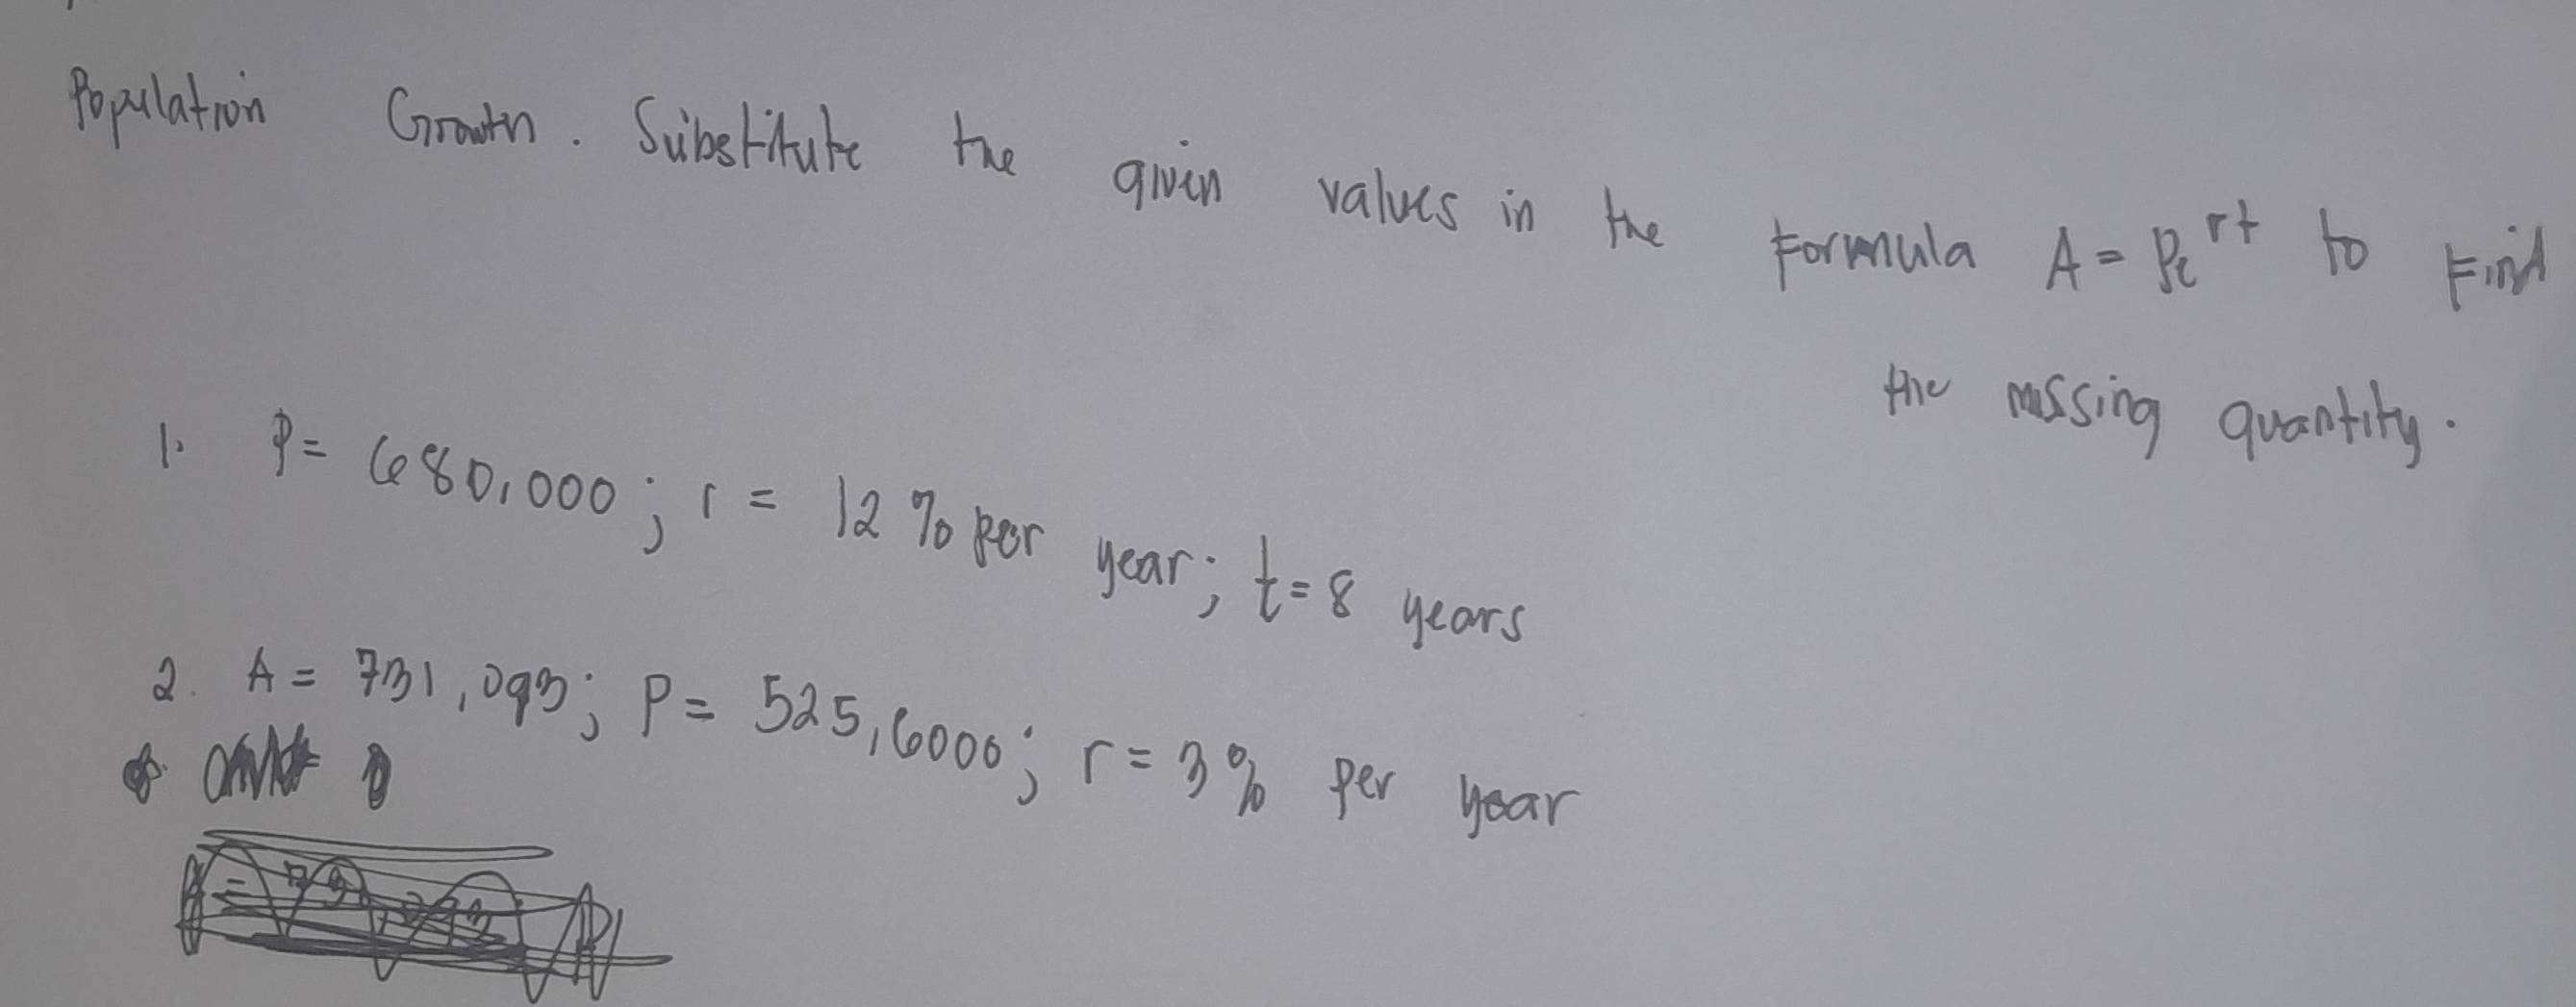 Population Growth. Substitute the given values in the formula A = Pe^rt to find
the missing quantity.
1. P = 680,000; r = 12% per year; t = 8 years
2. A = 731,093; P = 525,6000; r = 3% per year